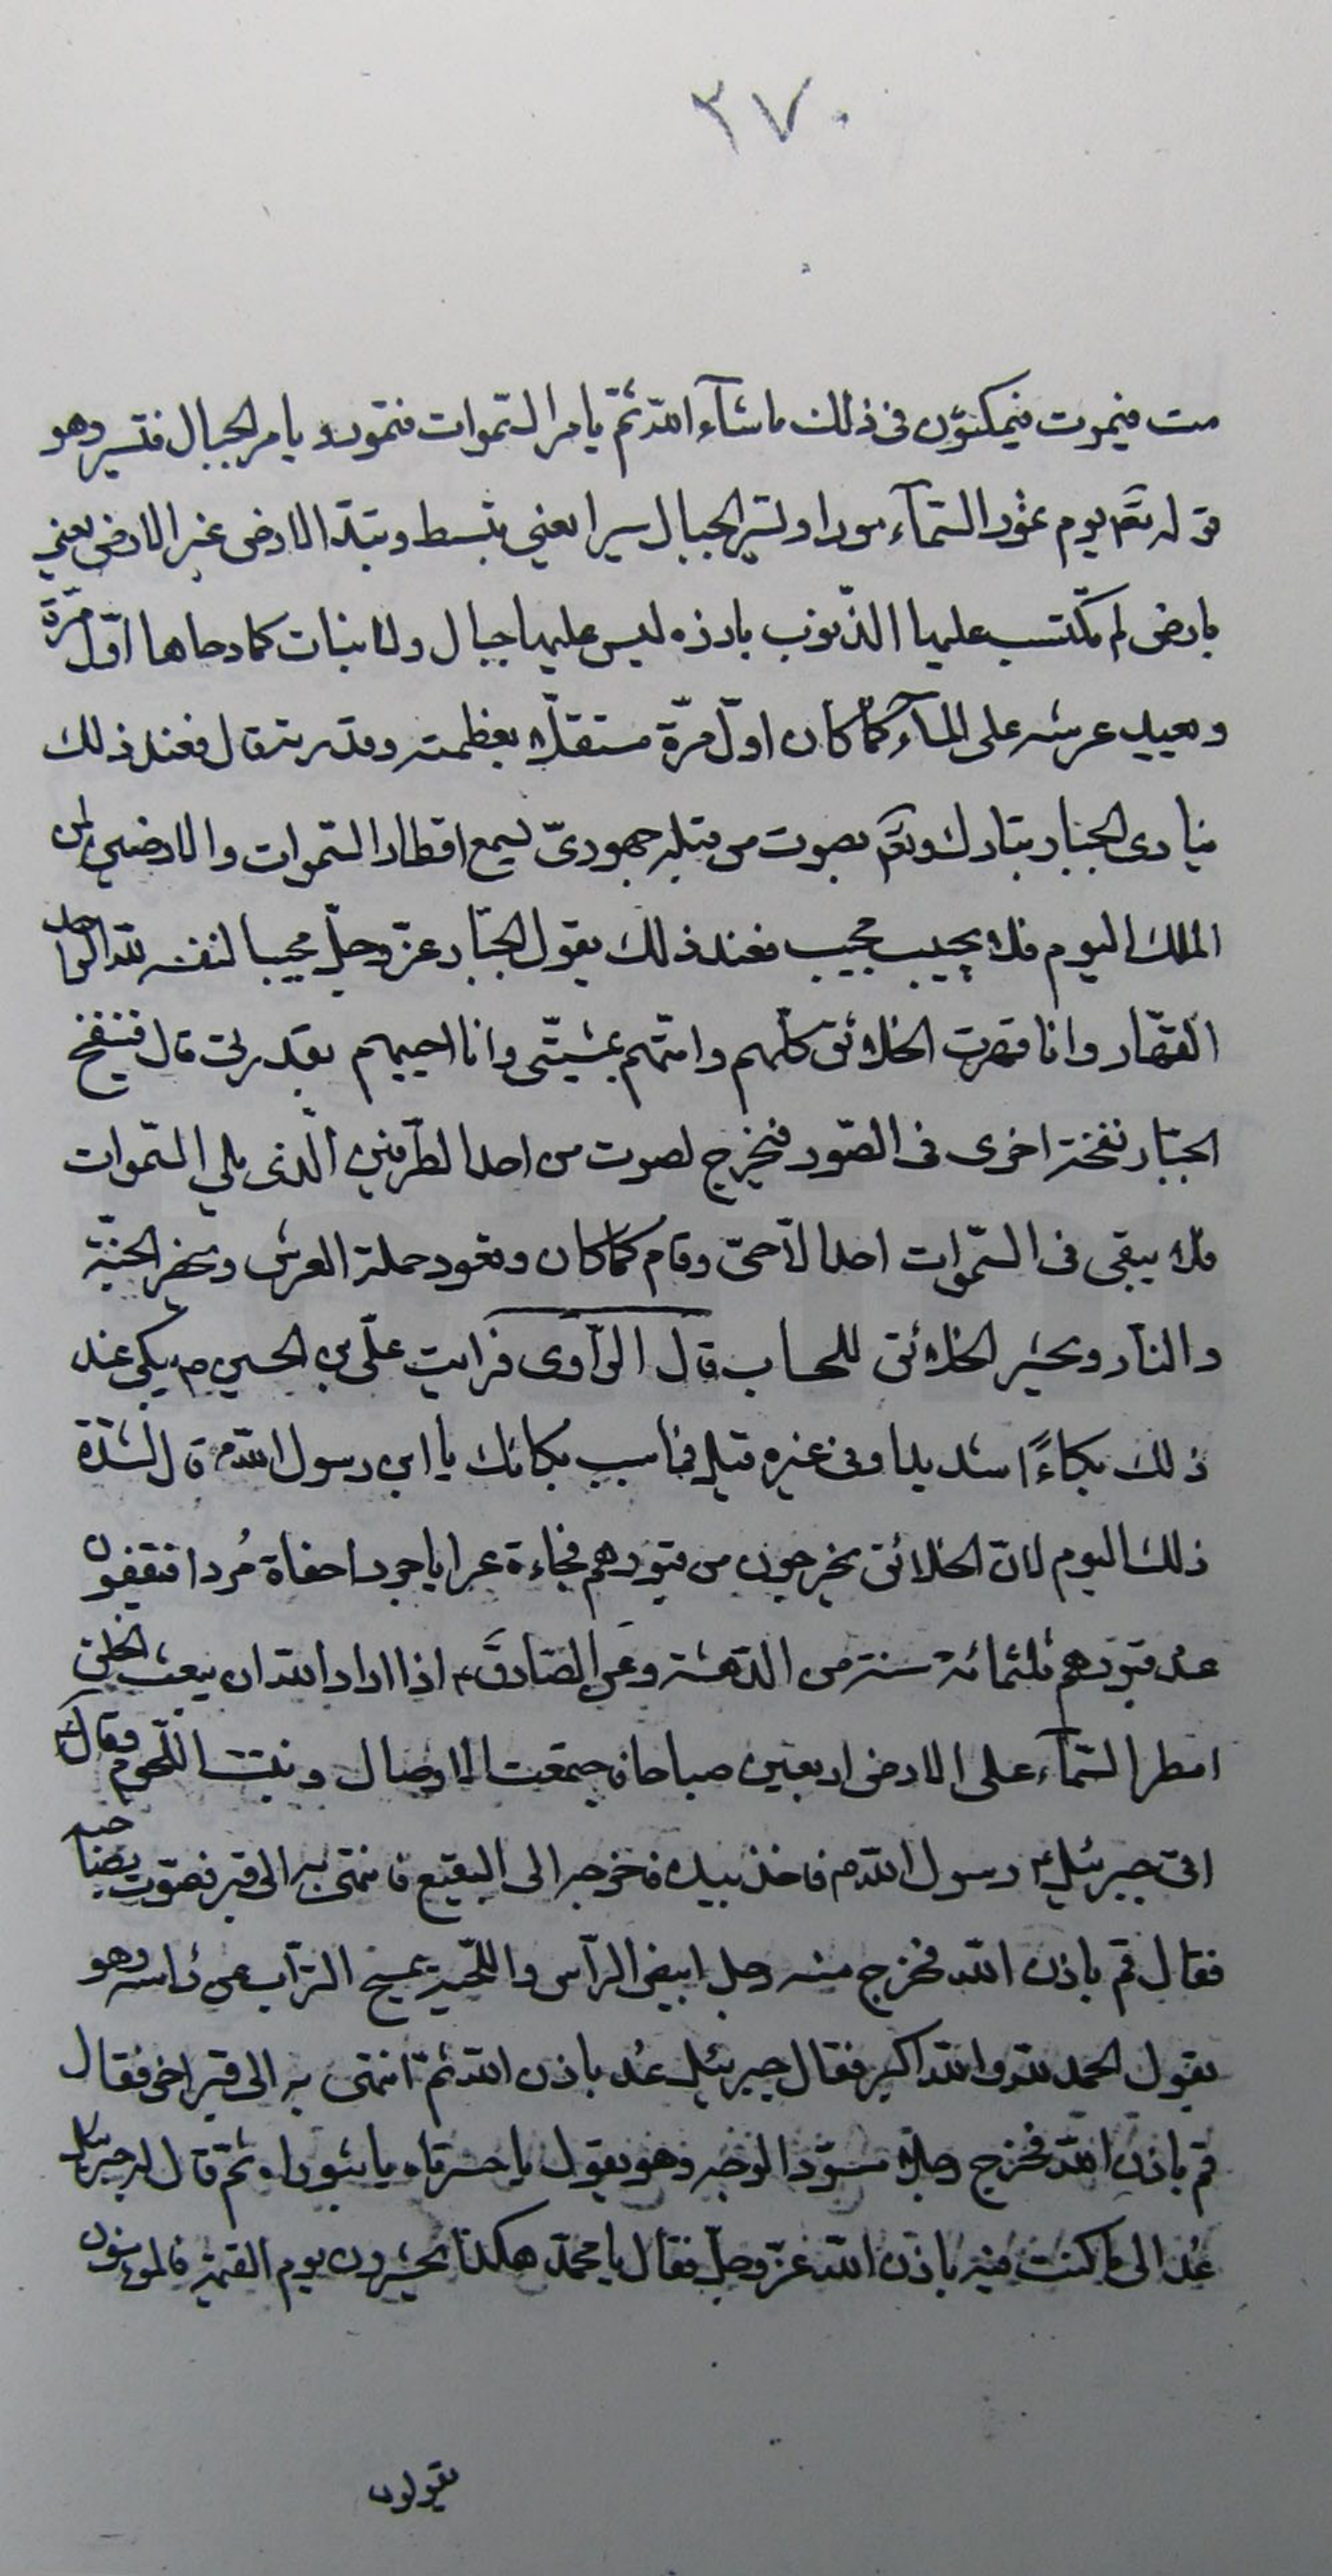 ٢٧٠
مت فيموت فيمكثون فى ذلك ما شآء الله ثمّ يامر السّموات فتمور و يامر الجبال فتسير وهو
قوله تعم يوم تمور السّمآء مورا و تسير الجبال سيرا يعني تبسط و تبدّل الارض غير الارض يعني
بارض لم تكتسب عليها الذّنوب بارزه ليس عليها جبال ولا نبات كما دحاها اوّل مرّة
و يعيد عرشه على المآء كما كان اوّل مرّة مستقلّا بعظمته وقدرته قال فعند ذلك
ينادى الجبّار تبارك وتعم بصوت من قبله جهورىّ يسمع اقطار السّموات والارضين لمن
الملك اليوم فلا يجيب مجيب فعند ذلك يقول الجبّار عزّوجلّ مجيبا لنفسه لله الواحد
القهّار وانا قهرت الخلائق كلّهم وامتّهم بمشيّتى وانا احييهم بقدرتى قال فينفخ
الجبّار نفخة اخرى فى الصّور فيخرج لصوت من احد الطّرفين الّذى يلي السّموات
فلا يبقى فى السّموات احد الّا حىّ وقام كما كان و تعود حملة العرش و تحضر الجنّة
والنّار و يحشر الخلائق للحساب قال الرّاوى فرايت علىّ بن الحسين ع يبكى عند
ذلك بكاءً شديدا وفى غيره قيل فما سبب بكائك يا ابن رسول الله ص قال لشدّة
ذلك اليوم لانّ الخلائق يخرجون من قبورهم فجاءة عرايا جردا حفاة مُردا فيقفون
عند قبورهم ثلثمائة سنة من الدّهشة وعن الصّادق ع اذا اراد الله ان يبعث الخلق
امطر السّمآء على الارض اربعين صباحا فاجتمعت الاوصال و نبتت اللّحوم وقال
اتى جبرئيل رسول الله ص فاخذ بيده فاخرجه الى البقيع فانتهى به الى قبر فصوّت بصاحبه
فقال قم باذن الله فخرج منه رجل ابيض الرّاس واللّحية يمسح التّراب عن راسه وهو
يقول الحمد لله والله اكبر فقال جبرئيل عُد باذن الله ثمّ انتهى به الى قبر اخر فقال
قم باذن الله فخرج رجلا مسوّد الوجه وهو يقول يا حسرتاه يا ثبوراه ثمّ قال له جبرئيل
عُد الى ما كنت فيه باذن الله عزّوجلّ فقال يا محمّد هكذا يحشرون يوم القيمة فالمومنون
يقولون